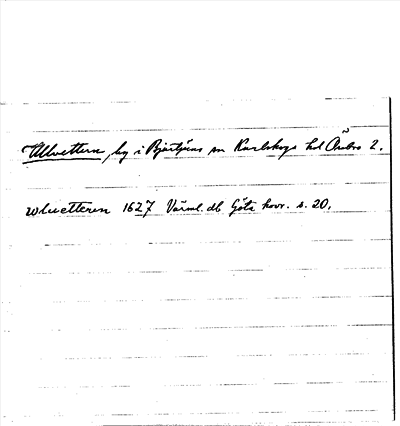 Ullvettern, by i Bjurtjärns sn Karlskoga hd Örebro l.
wluetteren 1627 Värml. db Göta hovr. s. 20.